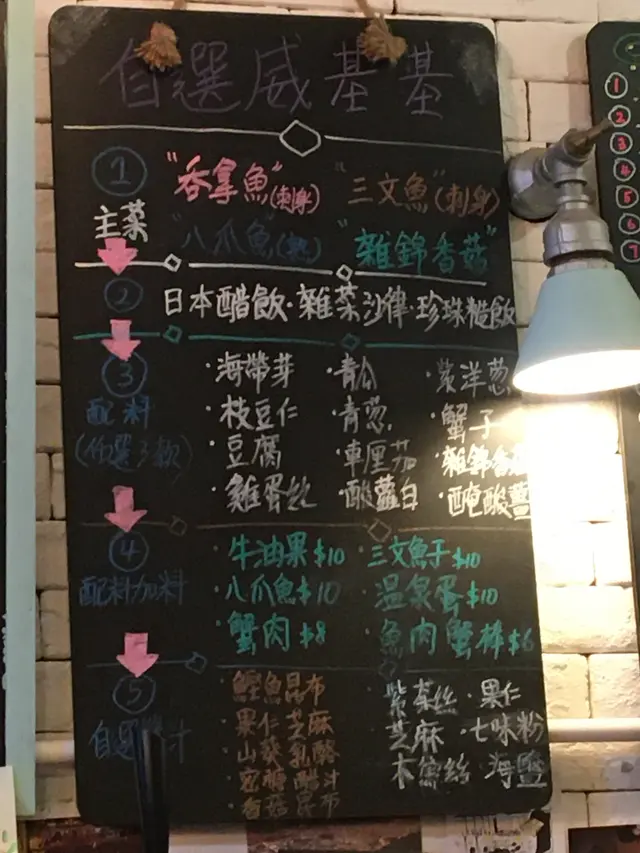 自選威基基
① "吞拿魚"(刺身) "三文魚"(刺身)
主菜 "八爪魚"(熟) "雜錦香菇"
② 日本醋飯·雜菜沙律·珍珠糙飯
③ ·海帶芽 ·青瓜 ·紫洋葱
配料 ·枝豆仁 ·青葱 ·蟹子
(你選3款) ·豆腐 ·車厘茄 ·雜錦香菇
·雞蛋絲 ·酸蘿白 ·醃酸薑
④ ·牛油果$10 ·三文魚子$10
配料加料 ·八爪魚$10 ·温泉蛋$10
·蟹肉$8 ·魚肉蟹棒$6
⑤ ·鰹魚昆布 紫菜絲·果仁
自選 汁 ·果仁芝麻 芝麻·七味粉
·山葵乳酪 木魚絲·海鹽
·蜜糖醋汁
·香菇昆布
1
2
3
4
5
6
7